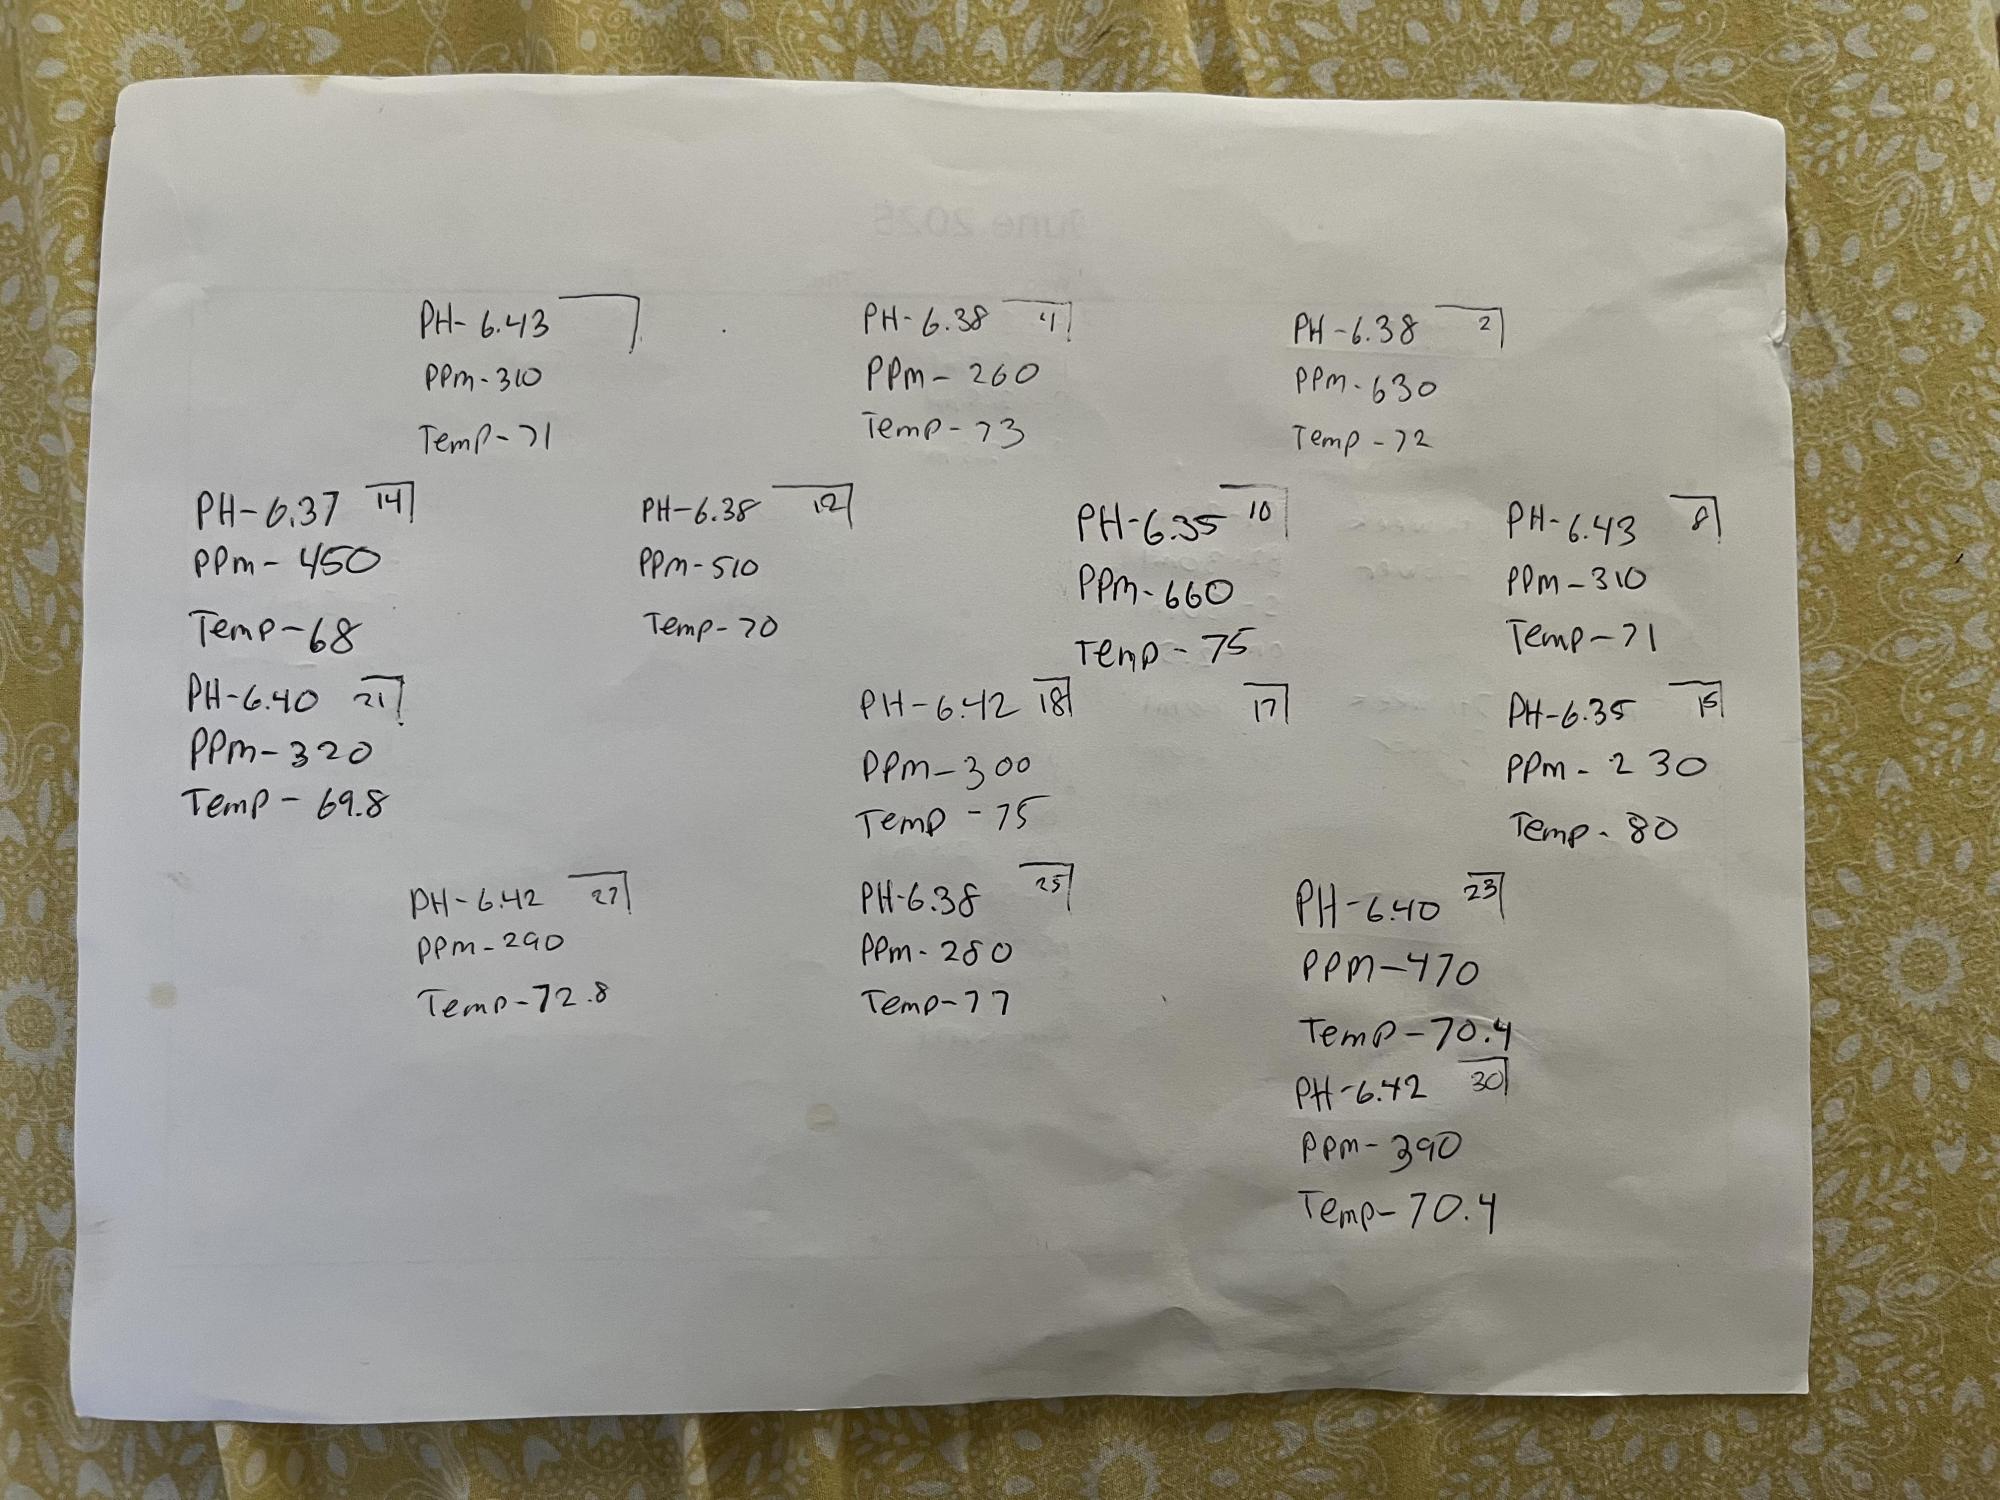 June 2025
PH- 6.43
PPm- 310
Temp- 71
PH- 6.38 4
PPm- 260
Temp- 73
PH-6.38 2
PPM-630
Temp-72
PH-6.37 14
PPm-450
Temp-68
PH-6.38 12
PPM-510
Temp-70
PH-6.35 10
PPM-660
Temp-75
PH-6.43 8
PPM-310
Temp-71
PH-6.40 21
PPm-320
Temp-69.8
PH-6.42 18
PPm-300
Temp-75
17
PH-6.35 15
PPm-230
Temp-80
PH-6.42 27
PPm-290
Temp-72.8
PH-6.38 25
PPm-280
Temp-77
PH-6.40 23
PPM-470
Temp-70.4
PH-6.42 30
PPm-390
Temp-70.4